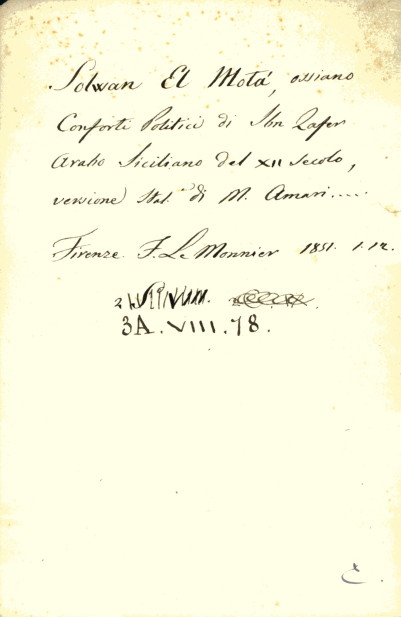 Solwan El Motá, ossiano
Conforti Politici di Ibn Zafer
Arabo Siciliano del XII secolo,
versione Ital. di M. Amari.....
Firenze. F. Le Monnier 1851. 1.12.
3A.VIII.78.